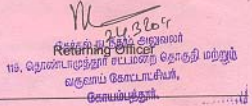 24.3.2024
தேர்தல் நடத்தும் அலுவலர்
Returning Officer
119, தொண்டாமுத்தூர் சட்டமன்ற தொகுதி மற்றும்
வருவாய் கோட்டாட்சியர்,
கோயம்புத்தூர்.